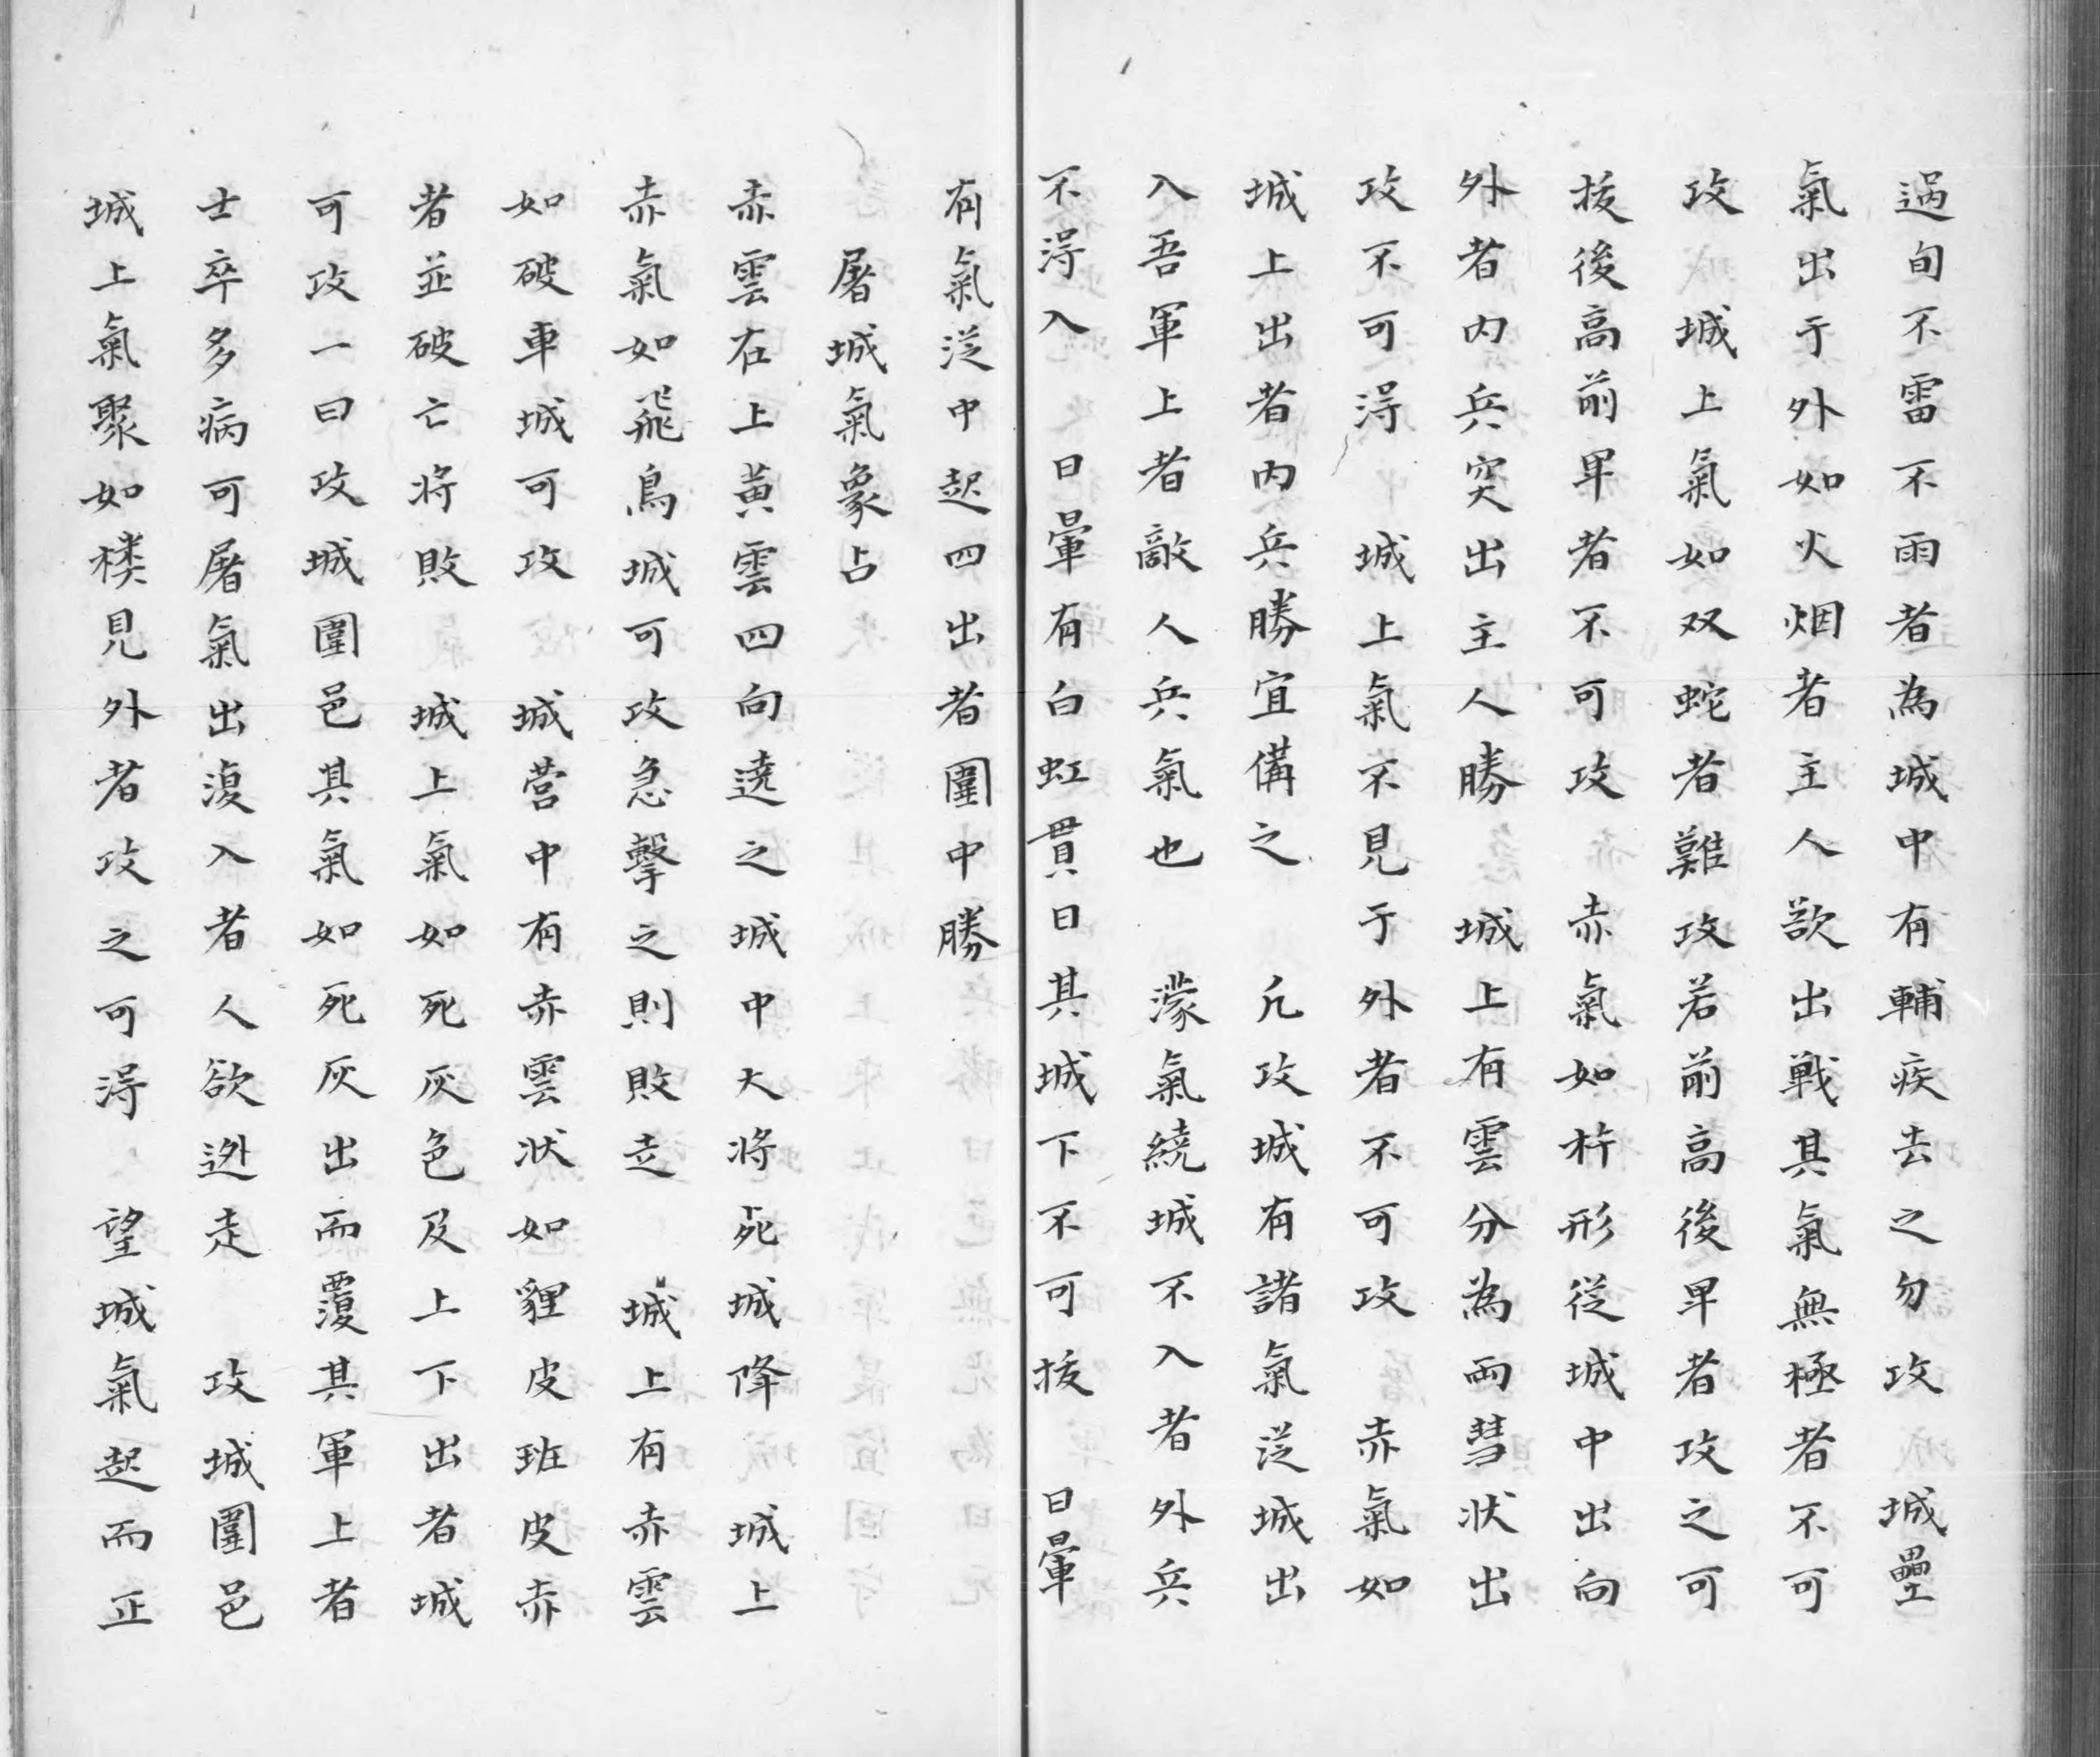 過旬不雷不雨者為城中有輔疾去之勿攻　城壘
氣出于外如火烟者主人欲出戦其氣無極者不可
攻　城上氣如双蛇者難攻若前高後卑者攻之可
拔後高前卑者不可攻　赤氣如杵形従城中出向
外者内兵突出主人勝　城上有雲分為両彗状出
攻不可淂　城上氣不見于外者不可攻　赤氣如
城上出者内兵勝宜備之　凢攻城有諸氣従城出
入吾軍上者敵人兵氣也　濛氣繞城不入者外兵
不淂入　日暈有白虹貫日其城下不可拔　日暈
有氣従中起四出者圍中勝
屠城氣象占
赤雲在上黄雲四向遶之城中大将死城降　城上
赤氣如飛鳥城可攻急擊之則敗走　城上有赤雲
如破車城可攻　城营中有赤雲状如貍皮班皮赤
者並破亡将敗　城上氣如死灰色及上下出者城
可攻一曰攻城圍邑其氣如死灰出而覆其軍上者
士卒多病可屠氣出復入者人欲迯走　攻城圍邑
城上氣聚如楼見外者攻之可淂　望城氣起而正